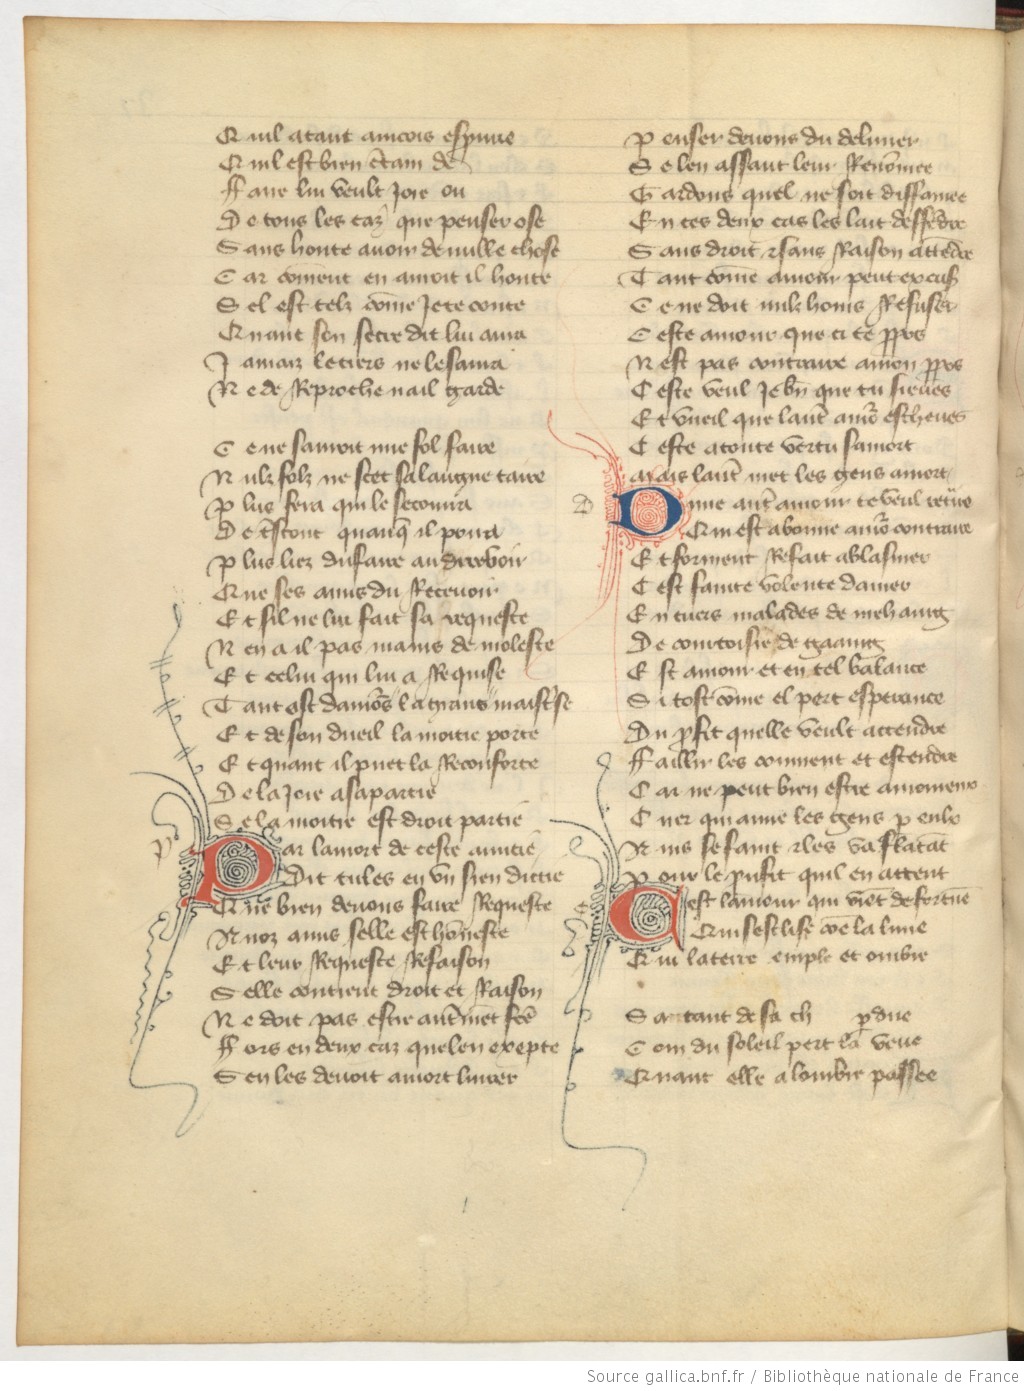 Quil a tant aincois espuue
Quil est bien de
Faire lui veult Joie ou
De tous les caz que penser ose
Sans honte auoir de nulle chose
Car coment en auroit il honte
Sel est telz cōme Je te conte
Quant son secre dit lui aura
Jamaiz le tiers ne le saura
Ne de Reproche nail garde
Ce ne sauroit mie fol faire
Nulz folz ne scet sa langue taire
Plus fera qui le secourra
De tout quanq̄ il pourra
Plus liez du faire au dire voir
Que ses amis du Receuoir
Et sil ne lui fait sa requeste
Nen a il pas mains de moleste
Et celui qui lui a Requise
Tant est damōs la grans maist'se
Et de son dueil la moitie porte
Et quant il puet la Reconforte
De la Joie a sa partie
Se la moitie est droit partie
Par la mort de ceste amitie
Dit tules en vn sien dictie
Que bien deuons faire Requeste
A noz amis selle est hōneste
Et leur Requeste Refaison
Selle contient droit et Raison
Ne doit pas estre aut'mēt fcē
Fors en deux caz quelen exepte
Sen les deuoit a mort liurer
Penser deuons du deliurer
Se len assaut leur Renōmee
Gardons quel ne soit diffamee
En ces deux cas les lait deffēdre
Sans droit sans Raison attēdre
Tant cōme amour peut excus'
Ce ne doit nulz homs Refuser
Ceste amour que ci te pp̄os
Nest pas contraire a mon pp̄os
Ceste veul Je bn̄ que tu sieues
Et vueil que laut' amo' escheues
Ceste a toute vertu samort
Mais laut' met les gens a mort
D
Dune aut' amour te veul ret're
Qui est a bonne amo' contraire
Et forment Refait a blasmer
Cest fainte volente damer
En cuers malades de mehaing
De couuoisie de gaaing
Est amour et en tel balance
Si tost cōme el pert esperance
Du pfit quelle veult attendre
Faillir les conuient et estendre
Car ne peut bien estre amoureux
Cuer qui aime les gens p eulx
Ains se faint les va flatāt
Pour le prufit quil en attent
Cest lamour qui viēt de fortūe
Qui sesclise cōe la lune
Que la terre emple et ombre
Sa tant de sa ch pdue
Com du soleil pert la veue
Quant elle a lombre passee
Source gallica.bnf.fr / Bibliothèque nationale de France